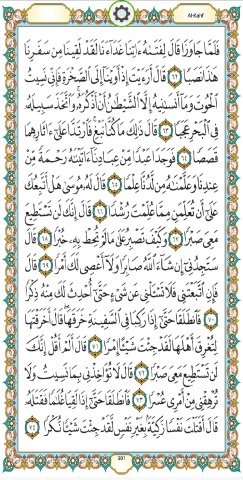 Al-Kahf
فَلَمَّا جَاوَزَا قَالَ لِفَتَىٰهُ ءَاتِنَا غَدَآءَنَا لَقَدْ لَقِينَا مِن سَفَرِنَا
هَٰذَا نَصَبًا ٦٢ قَالَ أَرَءَيْتَ إِذْ أَوَيْنَآ إِلَى ٱلصَّخْرَةِ فَإِنِّى نَسِيتُ
ٱلْحُوتَ وَمَآ أَنسَىٰنِيهُ إِلَّا ٱلشَّيْطَٰنُ أَنْ أَذْكُرَهُۥ وَٱتَّخَذَ سَبِيلَهُۥ
فِى ٱلْبَحْرِ عَجَبًا ٦٣ قَالَ ذَٰلِكَ مَا كُنَّا نَبْغِ فَٱرْتَدَّا عَلَىٰٓ ءَاثَارِهِمَا
قَصَصًا ٦٤ فَوَجَدَا عَبْدًا مِّنْ عِبَادِنَآ ءَاتَيْنَٰهُ رَحْمَةً مِّنْ
عِندِنَا وَعَلَّمْنَٰهُ مِن لَّدُنَّا عِلْمًا ٦٥ قَالَ لَهُۥ مُوسَىٰ هَلْ أَتَّبِعُكَ
عَلَىٰٓ أَن تُعَلِّمَنِ مِمَّا عُلِّمْتَ رُشْدًا ٦٦ قَالَ إِنَّكَ لَن تَسْتَطِيعَ
مَعِىَ صَبْرًا ٦٧ وَكَيْفَ تَصْبِرُ عَلَىٰ مَا لَمْ تُحِطْ بِهِۦ خُبْرًا ٦٨ قَالَ
سَتَجِدُنِىٓ إِن شَآءَ ٱللَّهُ صَابِرًا وَلَآ أَعْصِى لَكَ أَمْرًا ٦٩ قَالَ
فَإِنِ ٱتَّبَعْتَنِى فَلَا تَسْـَٔلْنِى عَن شَىْءٍ حَتَّىٰٓ أُحْدِثَ لَكَ مِنْهُ ذِكْرًا
٧٠ فَٱنطَلَقَا حَتَّىٰٓ إِذَا رَكِبَا فِى ٱلسَّفِينَةِ خَرَقَهَا قَالَ أَخَرَقْتَهَا
لِتُغْرِقَ أَهْلَهَا لَقَدْ جِئْتَ شَيْـًٔا إِمْرًا ٧١ قَالَ أَلَمْ أَقُلْ إِنَّكَ
لَن تَسْتَطِيعَ مَعِىَ صَبْرًا ٧٢ قَالَ لَا تُؤَاخِذْنِى بِمَا نَسِيتُ وَلَا
تُرْهِقْنِى مِنْ أَمْرِى عُسْرًا ٧٣ فَٱنطَلَقَا حَتَّىٰٓ إِذَا لَقِيَا غُلَٰمًا فَقَتَلَهُۥ
قَالَ أَقَتَلْتَ نَفْسًا زَكِيَّةًۢ بِغَيْرِ نَفْسٍ لَّقَدْ جِئْتَ شَيْـًٔا نُّكْرًا ٧٤
301